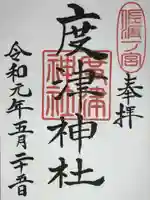 奉拝
佐渡一ノ宮
度津神社
度津
神社
令和元年五月二十五日